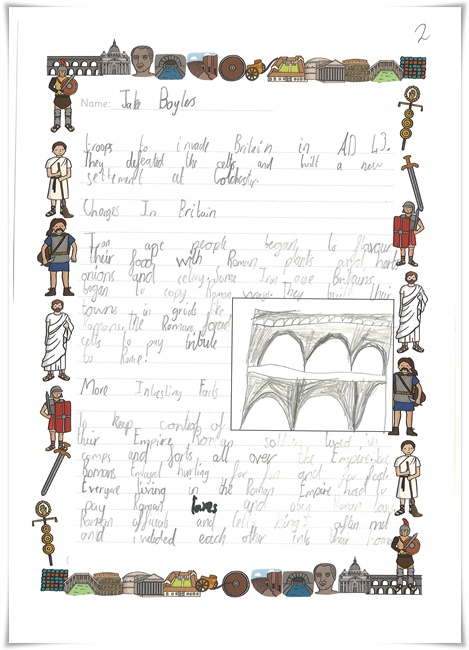 2
Name: Jake Boyles
troops to invade Britain in AD 43.
They defeated the celts and built a new
settlement at Colchester.
Changes In Britain
Iron age people began to flavour
their food with Roman plants and
onions and celery. Some Iron age Britains
began to copy Roman ways. They built their
towns in grids like
Romans. The Romans forced
cells to pay tribute
to Rome.
More Intresting Facts
To keep control of
their Empire Roman lived in
camps and forts all over the Empire.
Romans Enjoyed hunting for fun and for food.
Everyone living in the Roman Empire had to
pay Roman taxes and obey Roman
Roman officials and often met
and invited each other into their home